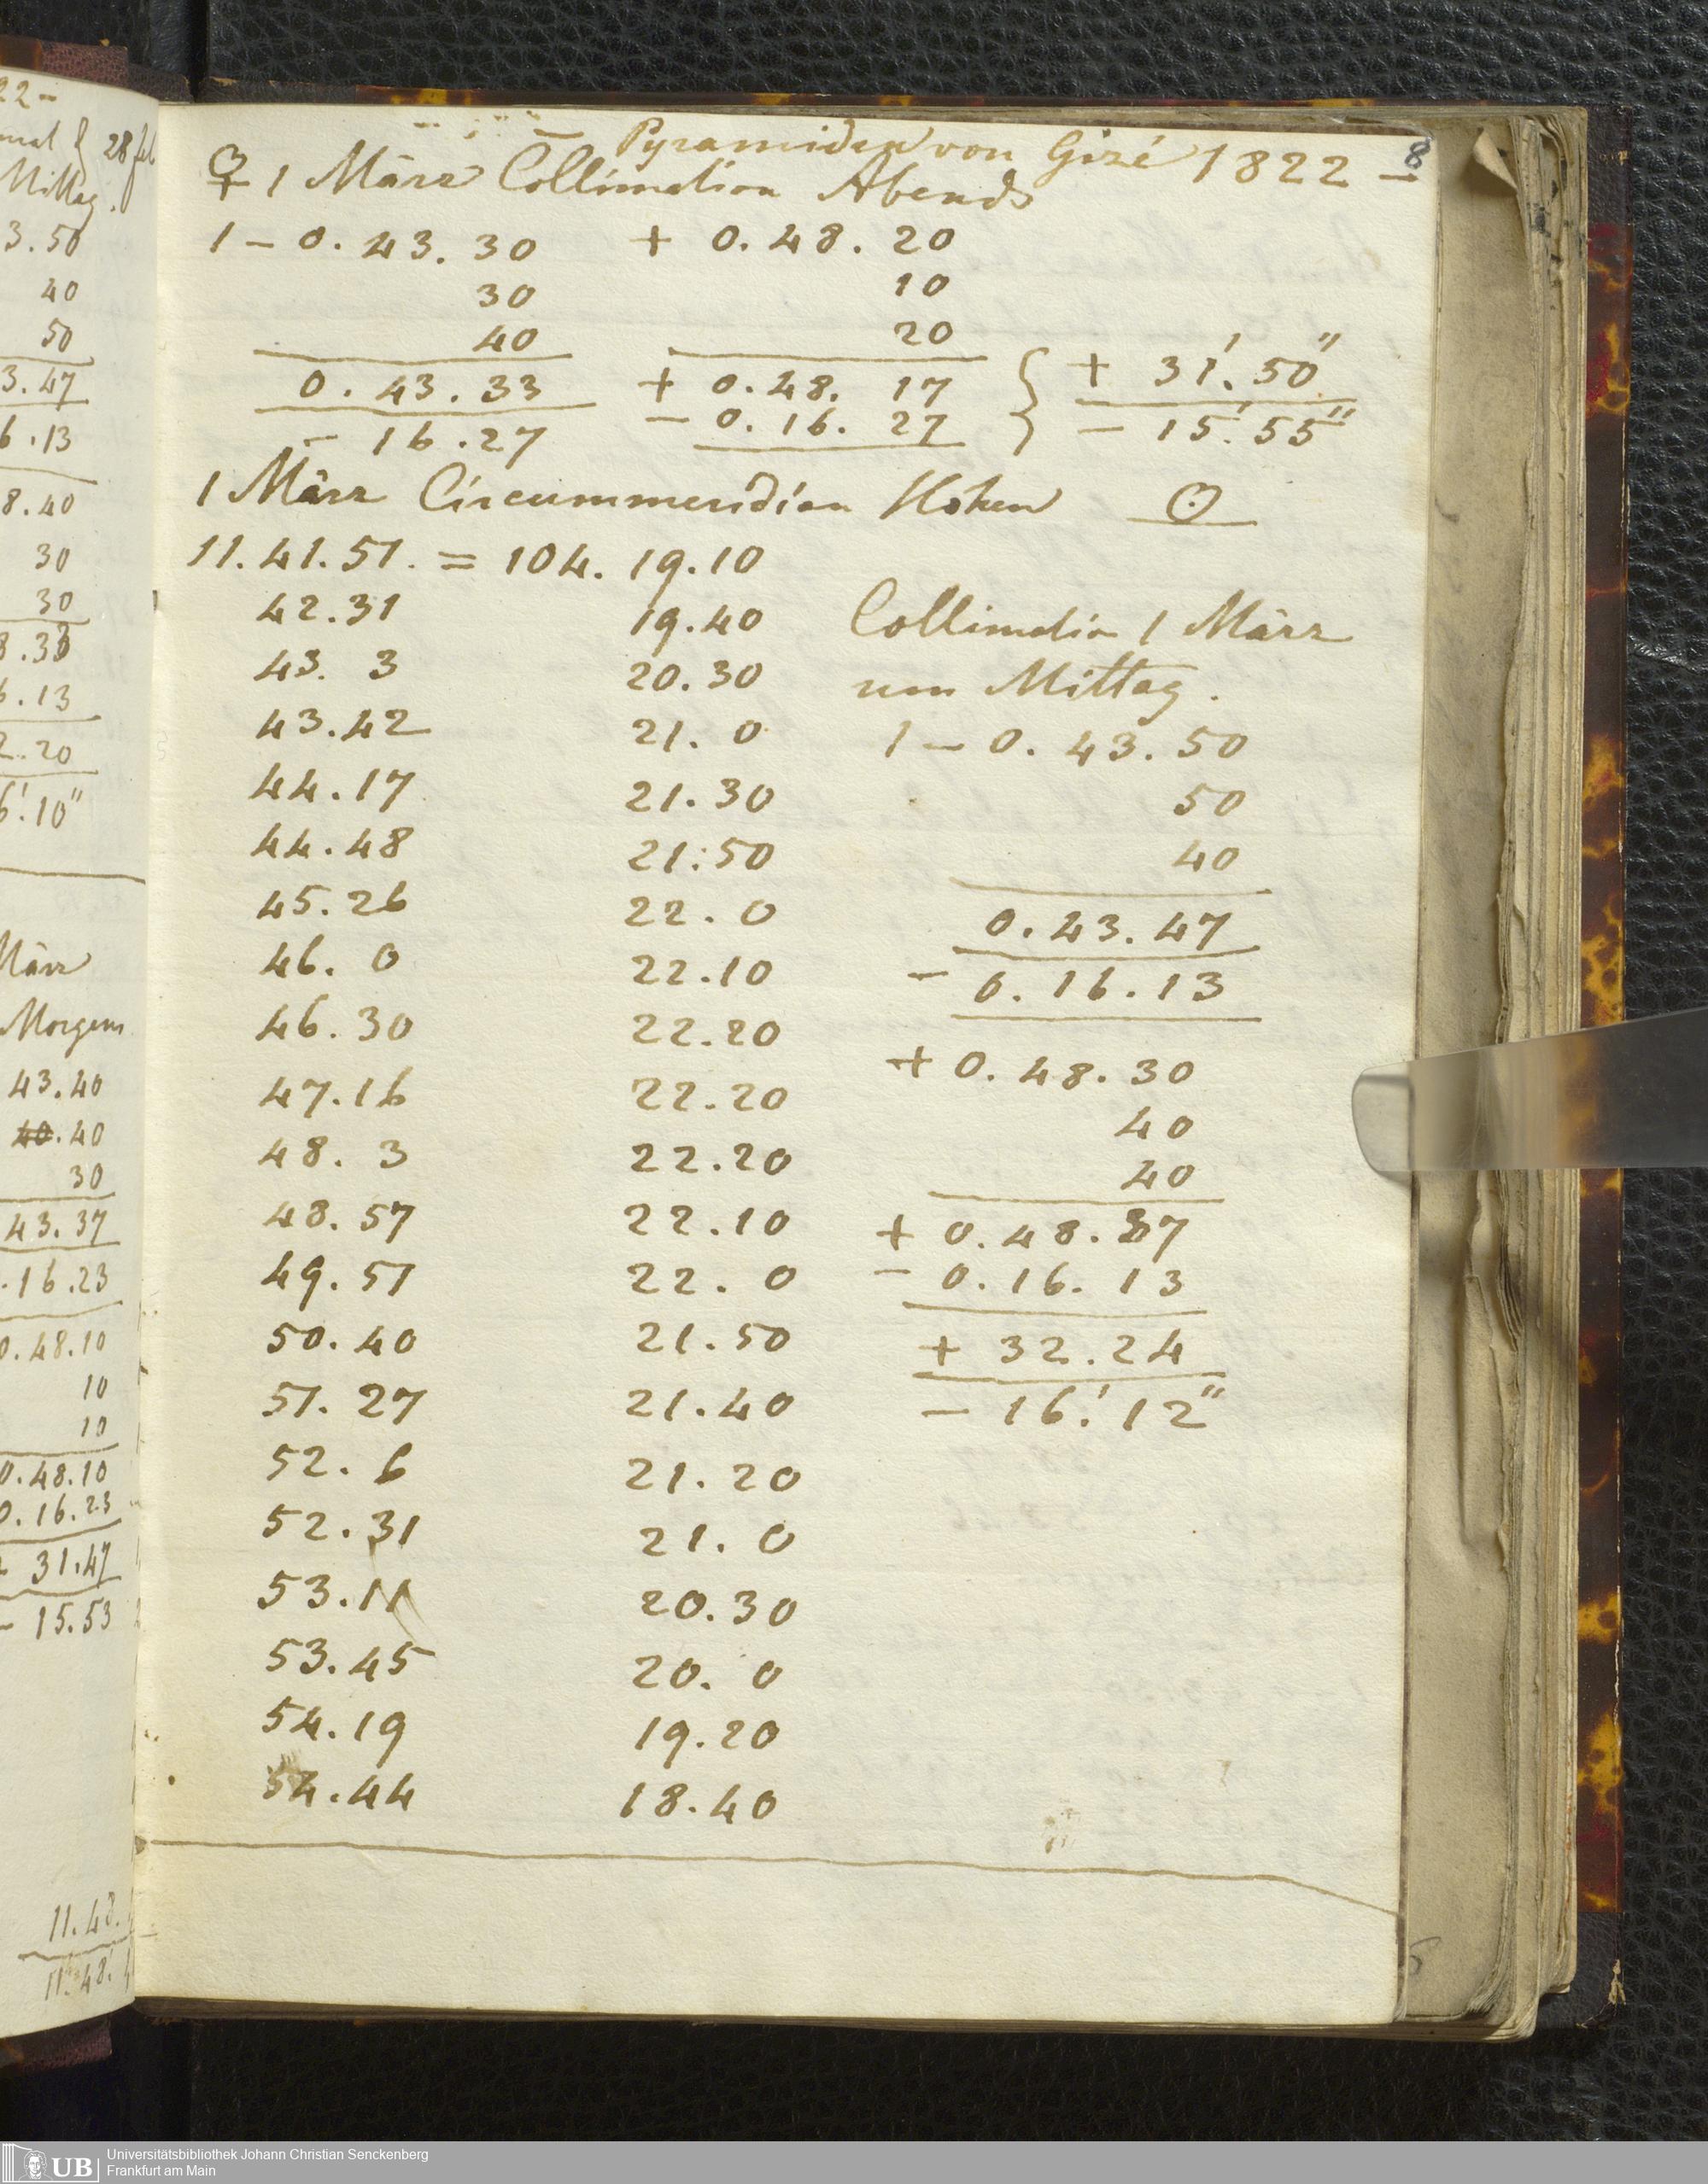 22 -
28 feb
Mittag.
3.50
40
50
3.47
6.13
8.40
30
30
8.33
6.13
2.20
6'.10"
März
Morgens
43.40
40.40
30
43.37
.16.23
0.48.10
10
10
0.48.10
0.16.23
31.47
- 15.53
11.48.
11.48.
Pyramiden von Gizé 1822 -
8
♀ 1 März Collimation Abends
1 - 0. 43. 30 + 0. 48. 20
30 10
40 20
0. 43. 33 + 0. 48. 17 } + 31'. 50"
- 16. 27 - 0. 16. 27 - 15'. 55"
1 März Circummeridian Höhen ☉
11. 41. 51. = 104. 19. 10
42. 31 19. 40
43. 3 20. 30
43. 42 21. 0
44. 17 21. 30
44. 48 21: 50
45. 26 22. 0
46. 0 22. 10
46. 30 22. 20
47. 16 22. 20
48. 3 22. 20
48. 57 22. 10
49. 51 22. 0
50. 40 21. 50
51. 27 21. 40
52. 6 21. 20
52. 31 21. 0
53. 11 20. 30
53. 45 20. 0
54. 19 19. 20
54. 44 18. 40
Collimation 1 März
um Mittag.
1 - 0. 43. 50
50
40
0. 43. 47
- 0. 16. 13
+ 0. 48. 30
40
40
+ 0. 48. 37
- 0. 16. 13
+ 32. 24
- 16'. 12"
UB
Universitätsbibliothek Johann Christian Senckenberg
Frankfurt am Main